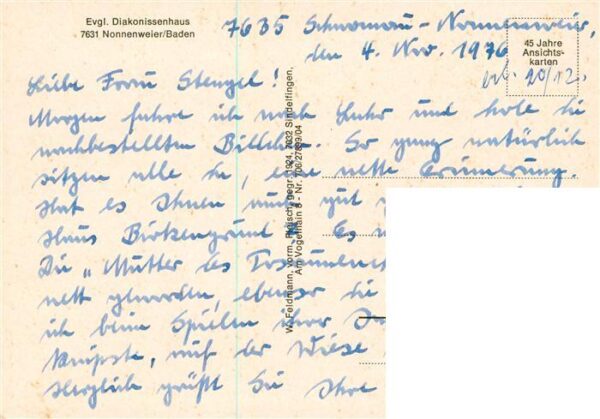 Evgl. Diakonissenhaus
7631 Nonnenweier/Baden
7635 Schwanau-Nonnenweier,
den 4. Nov. 1976
45 Jahre
Ansichts-
karten
20/12.
Liebe Frau Stengel!
Morgen fahre ich nach Lahr und hole die
nachbestellten Bildchen. So ganz natürlich
sitzen alle da, eine nette Erinnerung.
Hat es Ihnen auch gut
Haus Birkengrund Es
Die "Mutter des
nett geworden, ebenso die
ich beim Spielen ihrer
knipste, auf der Wiese
Herzlich grüßt Sie Ihre
W. Feldmann, vorm. Fritsch, gegr. 1924, 7032 Sindelfingen,
Am Vogelhain 8 - Nr. 706/27899/04